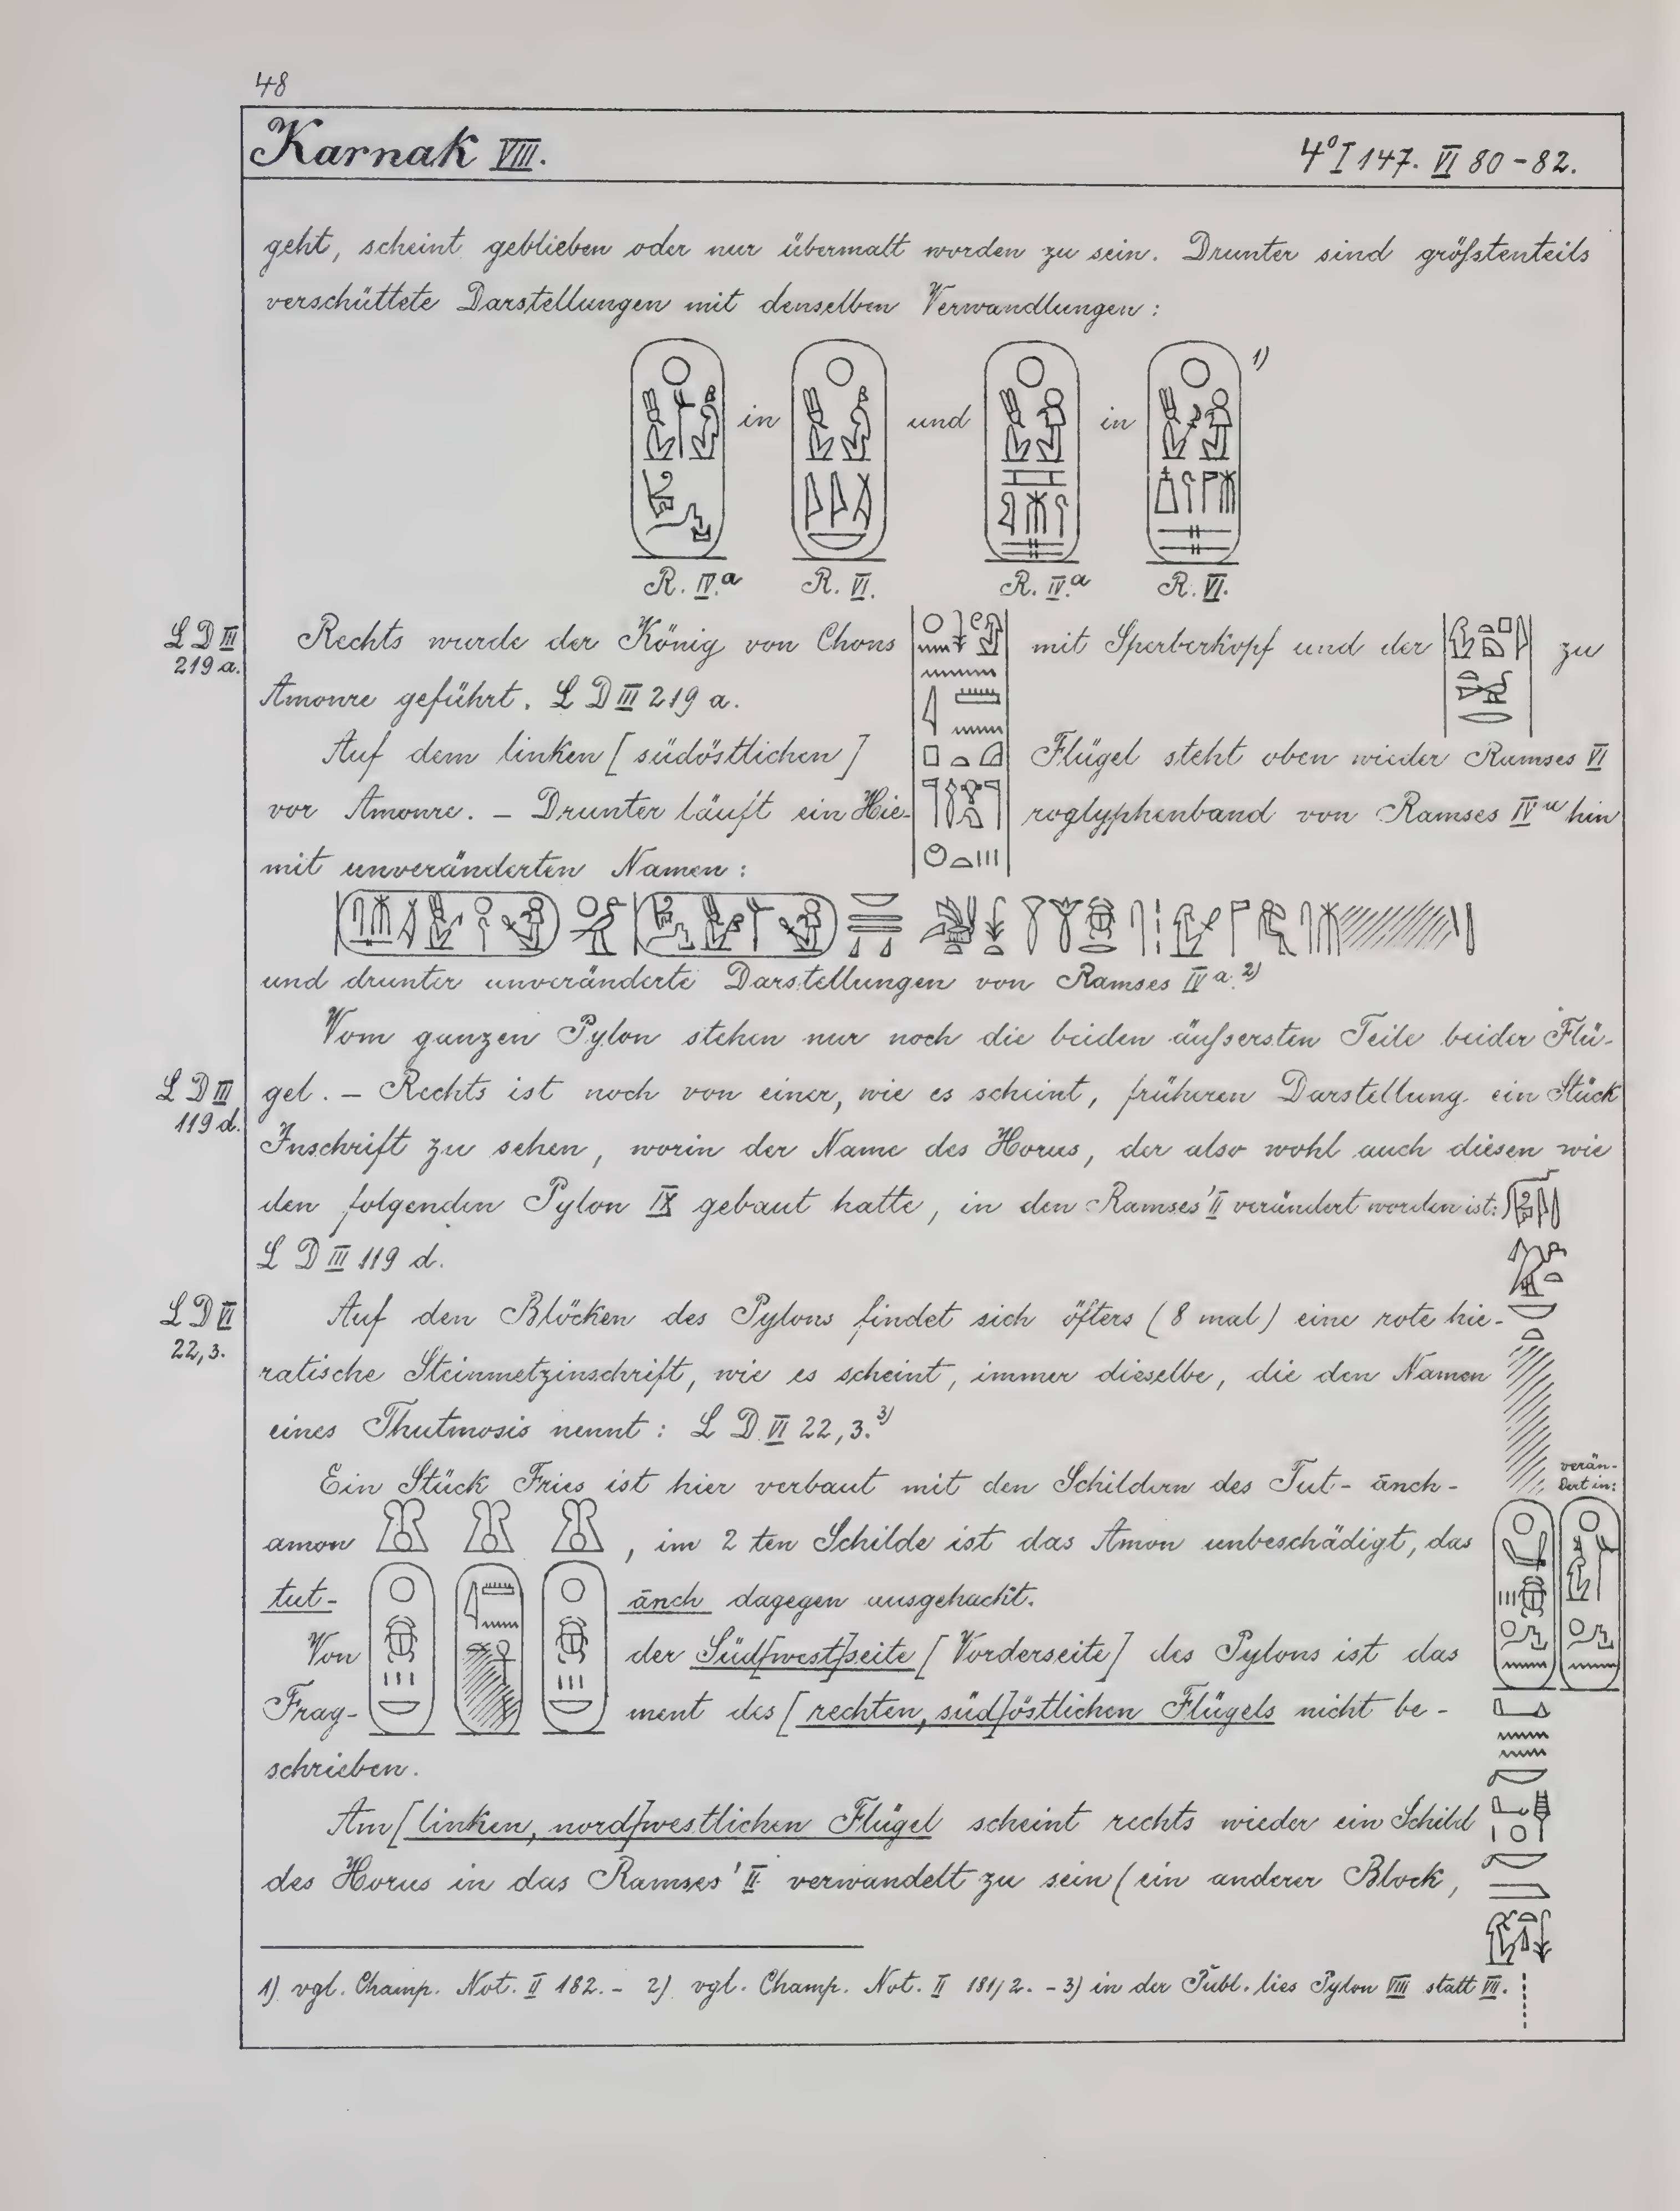 48
Karnak VIII.
4° I 147. VI 80-82.
geht, scheint geblieben oder nur übermalt worden zu sein. Drunter sind größtenteils
verschüttete Darstellungen mit denselben Verwandlungen:
in und in 1)
R. IV.a R. VI. R. IV.a R. VI.
L D III
219 a.
Rechts wurde der König von Chons mit Sperberkopf und der zu
Amonre geführt. L D III 219 a.
Auf dem linken [südöstlichen] Flügel steht oben wieder Ramses VI
vor Amonre. – Drunter läuft ein Hie-roglyphenband von Ramses IV a hin
mit unveränderten Namen:
und drunter unveränderte Darstellungen von Ramses IV a. 2)
Vom ganzen Pylon stehen nur noch die beiden äußersten Teile beider Flü-
L D III
119 d.
gel. – Rechts ist noch von einer, wie es scheint, früheren Darstellung ein Stück
Inschrift zu sehen, worin der Name des Horus, der also wohl auch diesen wie
den folgenden Pylon IX gebaut hatte, in den Ramses' II verändert worden ist:
L D III 119 d.
L D VI
22,3.
Auf den Blöcken des Pylons findet sich öfters (8 mal) eine rote hie-
ratische Steinmetzinschrift, wie es scheint, immer dieselbe, die den Namen
eines Thutmosis nennt: L D VI 22,3. 3)
verän-
dert in:
Ein Stück Fries ist hier verbaut mit den Schildern des Tut-ānch-
amon , im 2 ten Schilde ist das Amon unbeschädigt, das
tut- ānch dagegen ausgehackt.
Von der Süd[west]seite [Vorderseite] des Pylons ist das
Frag- ment des [rechten, süd]östlichen Flügels nicht be-
schrieben.
Am [linken, nord]westlichen Flügel scheint rechts wieder ein Schild
des Horus in das Ramses' II verwandelt zu sein (ein anderer Block,
1) vgl. Champ. Not. II 182. – 2) vgl. Champ. Not. II 181/2. – 3) in der Publ. lies Pylon VIII statt VII.